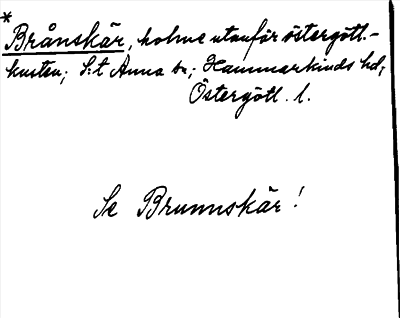 *
Brånskär, holme utanför östergötl.-
kusten; S:t Anna sn; Hammarkinds hd,
Östergötl. l.
Se Brunnskär!